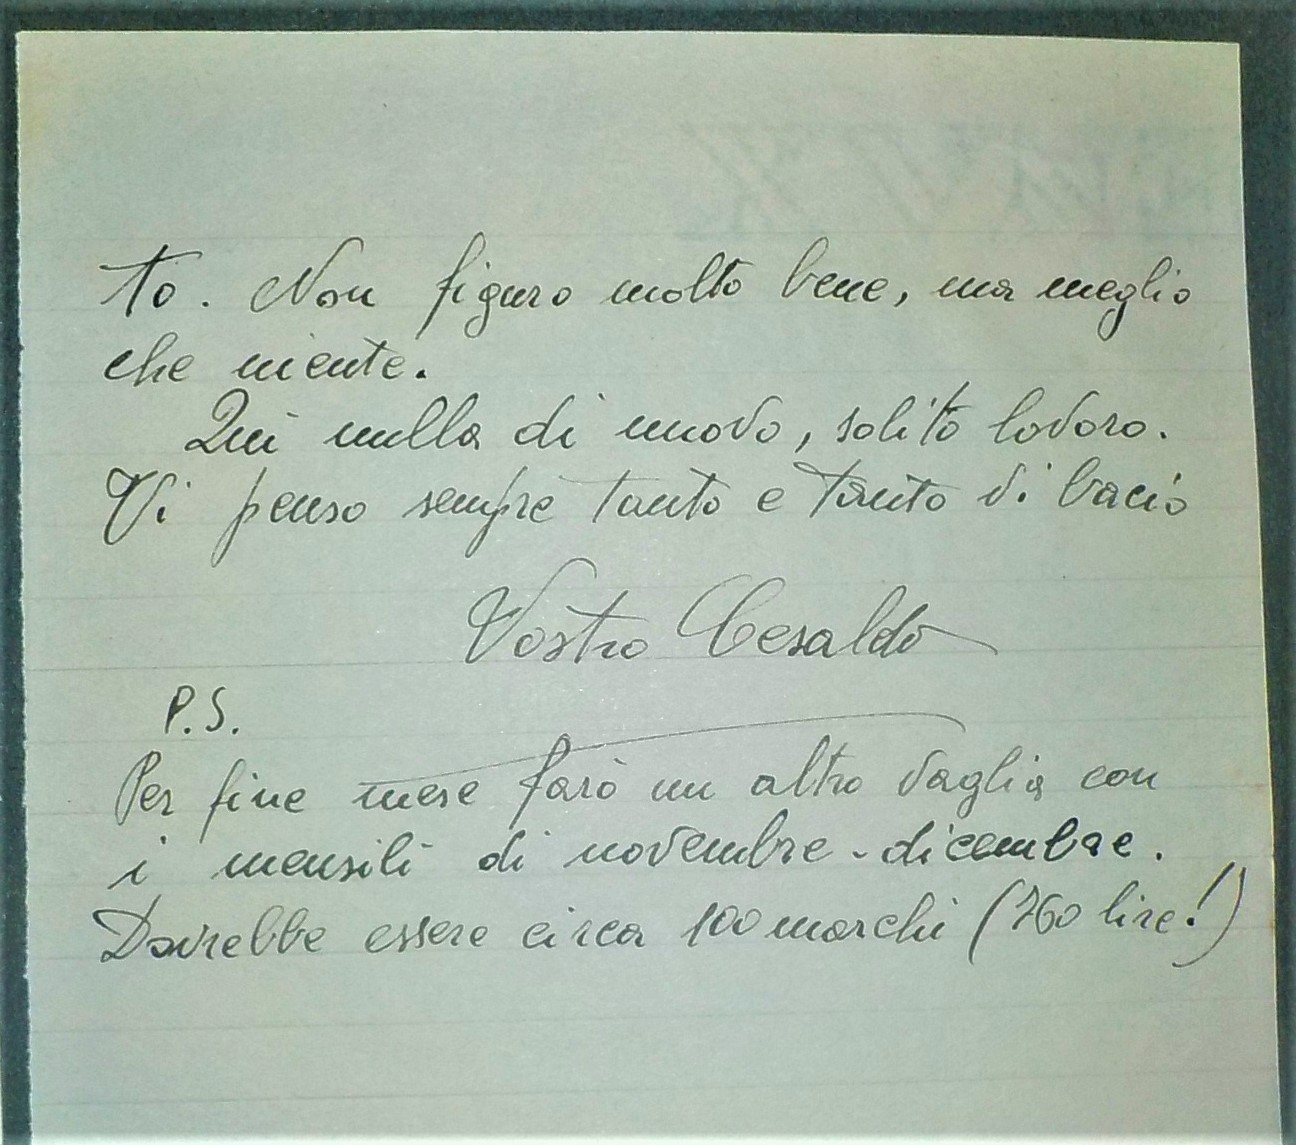 to. Non figuro molto bene, ma meglio
che niente.
Qui nulla di nuovo, solito lavoro.
Vi penso sempre tanto e tanto vi bacio
Vostro Cesaldo
P.S.
Per fine mese farò un altro vaglia con
i mensili di novembre-dicembre.
Dovrebbe essere circa 100 marchi (760 lire!)